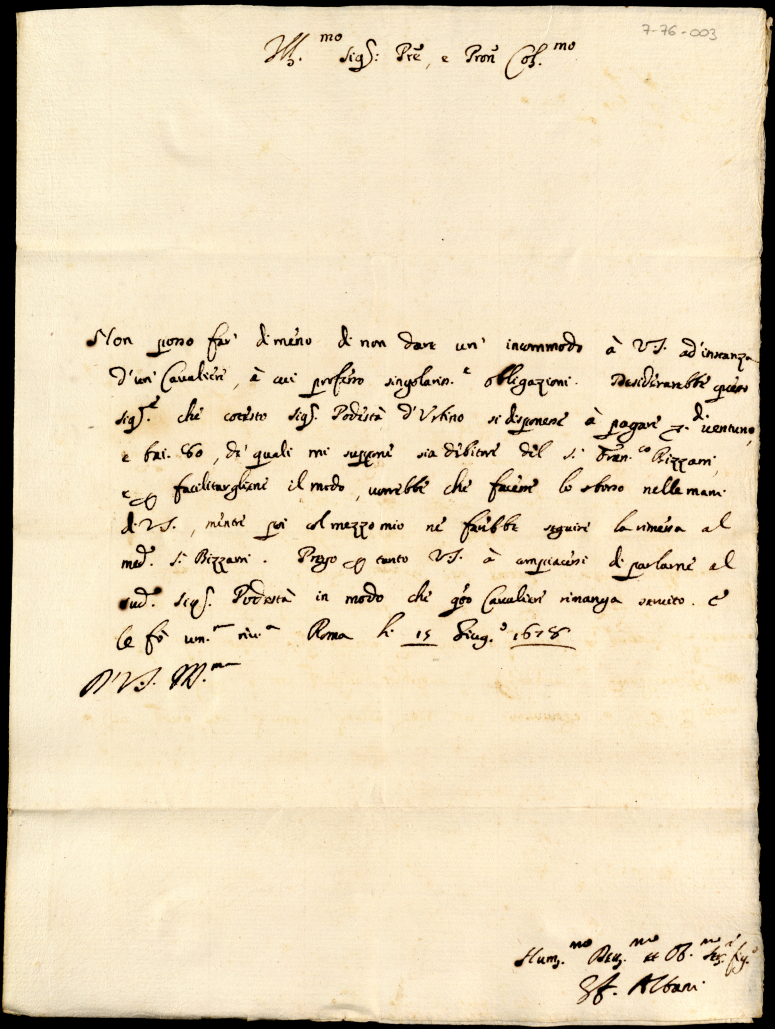 7-76-003
Ill.mo Sig.r: Pre, e Pron Col.mo
Non posso far' dimeno di non dare un' incommodo à V.S. ad'instanza
d'un' Cavaliere, à cui professo singolariss.e obbligazioni. Desiderarebbe questo
Sig.re che cotesto Sig.r Podestà d'Urbino si disponesse à pagare di ventuno,
e bai. 80, de' quali mi suppone sia debitore del S.r Fran.co Bizzarri,
e facilitargliene il modo, vorrebbe che facesse lo sborso nelle mani
di V.S., mentre poi col mezzo mio ne farebbe seguire la rimessa al
med. S.r Bizzarri. Prego tanto V.S. à compiacersi di parlarne al
sud. Sig.r Podestà in modo che qsto Cavaliere rimanga servito. E
le fò um.a riv.a Roma li 15 Giug.o 1678
D'V.S. Ill.ma
Hum.mo Dev.mo et Ob.mo
Albani